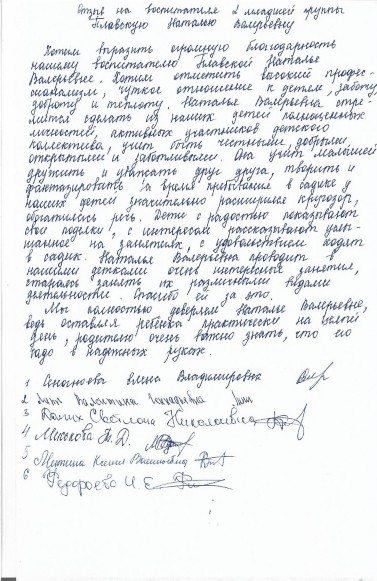 Отзыв на воспитателя 2 младшей группы
Главскую Наталью Валерьевну
Хотим выразить огромную благодарность
нашему воспитателю Главской Наталье
Валерьевне. Хотим отметить высокий профес-
сионализм, чуткое отношение к детям, заботу,
доброту и теплоту. Наталья Валерьевна стре-
мится сделать из наших детей полноценных
личностей, активных участников детского
коллектива, учит быть честными, добрыми,
открытыми и заботливыми. Она учит малышей
дружить и уважать друг друга, творить и
фантазировать. За время пребывание в садике у
наших детей значительно расширился кругозор,
обогатилась речь. Дети с радостью показывают
свои поделки, с интересом рассказывают услы-
шанное на занятиях, с удовольствием ходят
в садик. Наталья Валерьевна проводит с
нашими детками очень интересные занятия,
стараясь занять их различными видами
деятельности. Спасибо ей за это.
Мы полностью доверяем Наталье Валерьевне,
ведь оставляя ребенка практически на целый
день, родителю очень важно знать, что его
чадо в надежных руках.
1 Елена Владимировна
2 Валентина
3 Светлана Николаевна
4 Т. Д.
5 Ксения
6 Федорова И Е